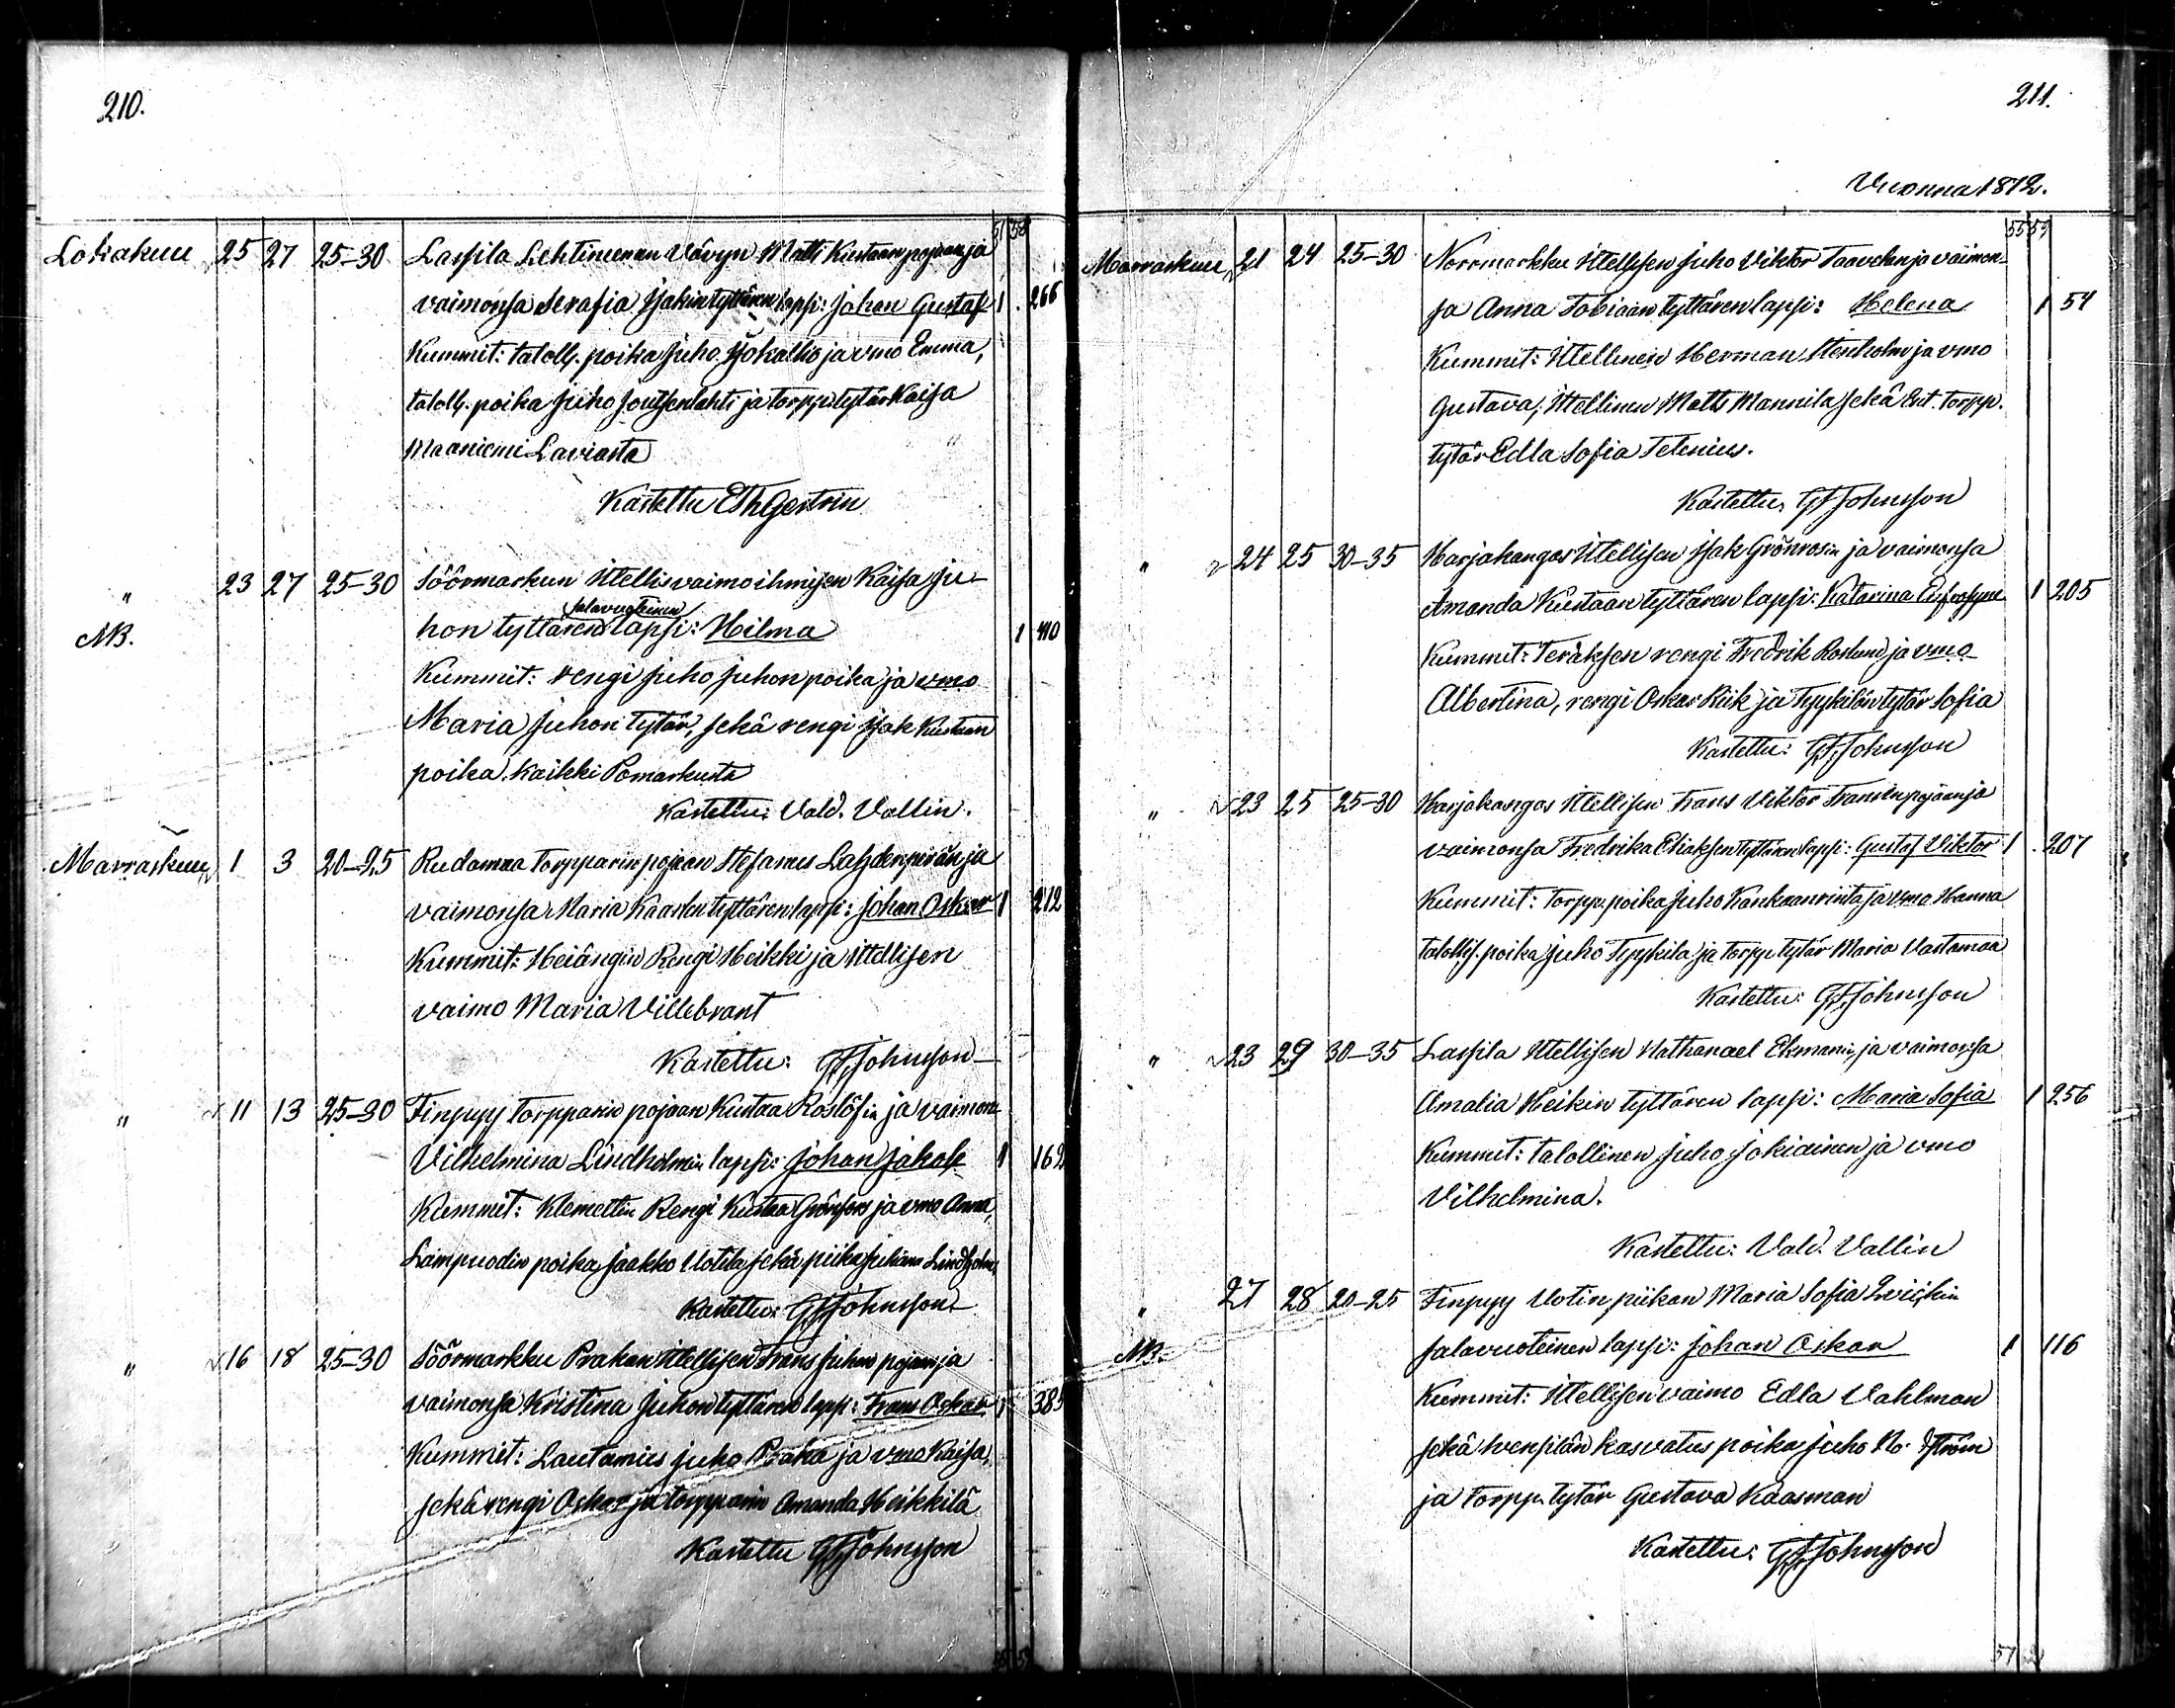 210.
51 58
Lokakuu 25 27 25-30 Lassila Lehtimenen Vävyn Matti Kustaan pojan ja
vaimonsa Serafia Isakin tyttären lapsi: Johan Gustaf 1 266
Kummit: taloll. poika Juho Isokallio ja vmo Emma,
taloll. poika Juho Joutsenlahti ja torpp. tytär Kaisa
Maaniemi Laviasta
Kastettu
" 23 27 25-30 Söörmarkun Itellis vaimoihmisen Kaisa Ju-
salavuoteinen
NB. hon tyttären lapsi: Hilma 1 410
Kummit: rengi Juho Juhon poika ja vmo
Maria Juhon tytär, sekä rengi Isak Kustaan
poika. Kaikki Pomarkusta
Kastettu: Vald. Vallin.
Marraskuu 1 3 20-25 Rudamaa Torpparin pojan Stefanus Lahdenperän ja
vaimonsa Maria Kaarlen tyttären lapsi: Johan Oskar 1 212
Kummit: Heiängin Rengi Heikki ja Itellisen
vaimo Maria Villebrant
Kastettu: GF Johnsson
" 11 13 25-30 Finpyy torpparin pojan Kustaa Roslöfin ja vaimons
Vilhelmina Lindholmin lapsi: Johan Jakob 1 162
Kummit: Klemettin Rengi Kustaa Grönfors ja vmo Anna,
Lampuodin poika Jaakko Uotila sekä piika Lindholm,
Kastettu: GF Johnsson
" 16 18 25-30 Söörmarkku Prakan Itellisen Frans Juhan pojan ja
vaimonsa Kristina Juhon tyttären lapsi: Frans Oskar 1 385
Kummit: Lautamies Juho Praka ja vmo Kaisa,
sekä rengi Oskar ja torpparin Amanda Heikkilä
Kastettu GF Johnsson
211.
Vuonna 1872.
55 59
Marraskuu 21 24 25-30 Norrmarkku Itellisen Juho Viktor Taavelan ja vaimon-
sa Anna Tobiaan tyttären lapsi: Helena 1 54
Kummit: Itellinen Herman Stenholm ja vmo
Gustava, Itellinen Matts Mannila sekä Ent. Torpp.
tytär Edla Sofia Telenius.
Kastettu: GF Johnsson
" 24 25 30-35 Harjakangas Itellisen Isak Grönrosin ja vaimonsa
Amanda Kustaan tyttären lapsi: Katarina Eufrosyne 1 205
Kummit: Teräksen rengi Fredrik Roslund ja vmo
Albertina, rengi Oskar Rik ja Typykilän tytär Sofia
Kastettu: GF Johnsson
" 23 25 25-30 Harjakangas Itellisen Frans Viktor Fransin pojan ja
vaimonsa Fredrika Eliaksen tyttären lapsi: Gustaf Viktor 1 207
Kummit: Torpp. poika Juho Kankaanrinta ja vmo Hanna
talollis. poika Juho Typykila ja torpp. tytär Maria Vastamaa
Kastettu: GF Johnsson
" 23 29 30-35 Lassila Itellisen Nathanael Ekmanin ja vaimonsa
Amalia Heikin tyttären lapsi: Maria Sofia 1 256
Kummit: talollinen Juho Jokiainen ja vmo
Vilhelmina.
Kastettu: Vald. Vallin
" 27 28 20-25 Finpyy Uotin piikan Maria Sofia
NB. salavuoteinen lapsi: Johan Oskar 1 116
Kummit: Itellisen vaimo Edla Vahlman
sekä kasvatus poika Juho
ja Torpp. tytär Gustava Kaasman
Kastettu: GF Johnsson
57